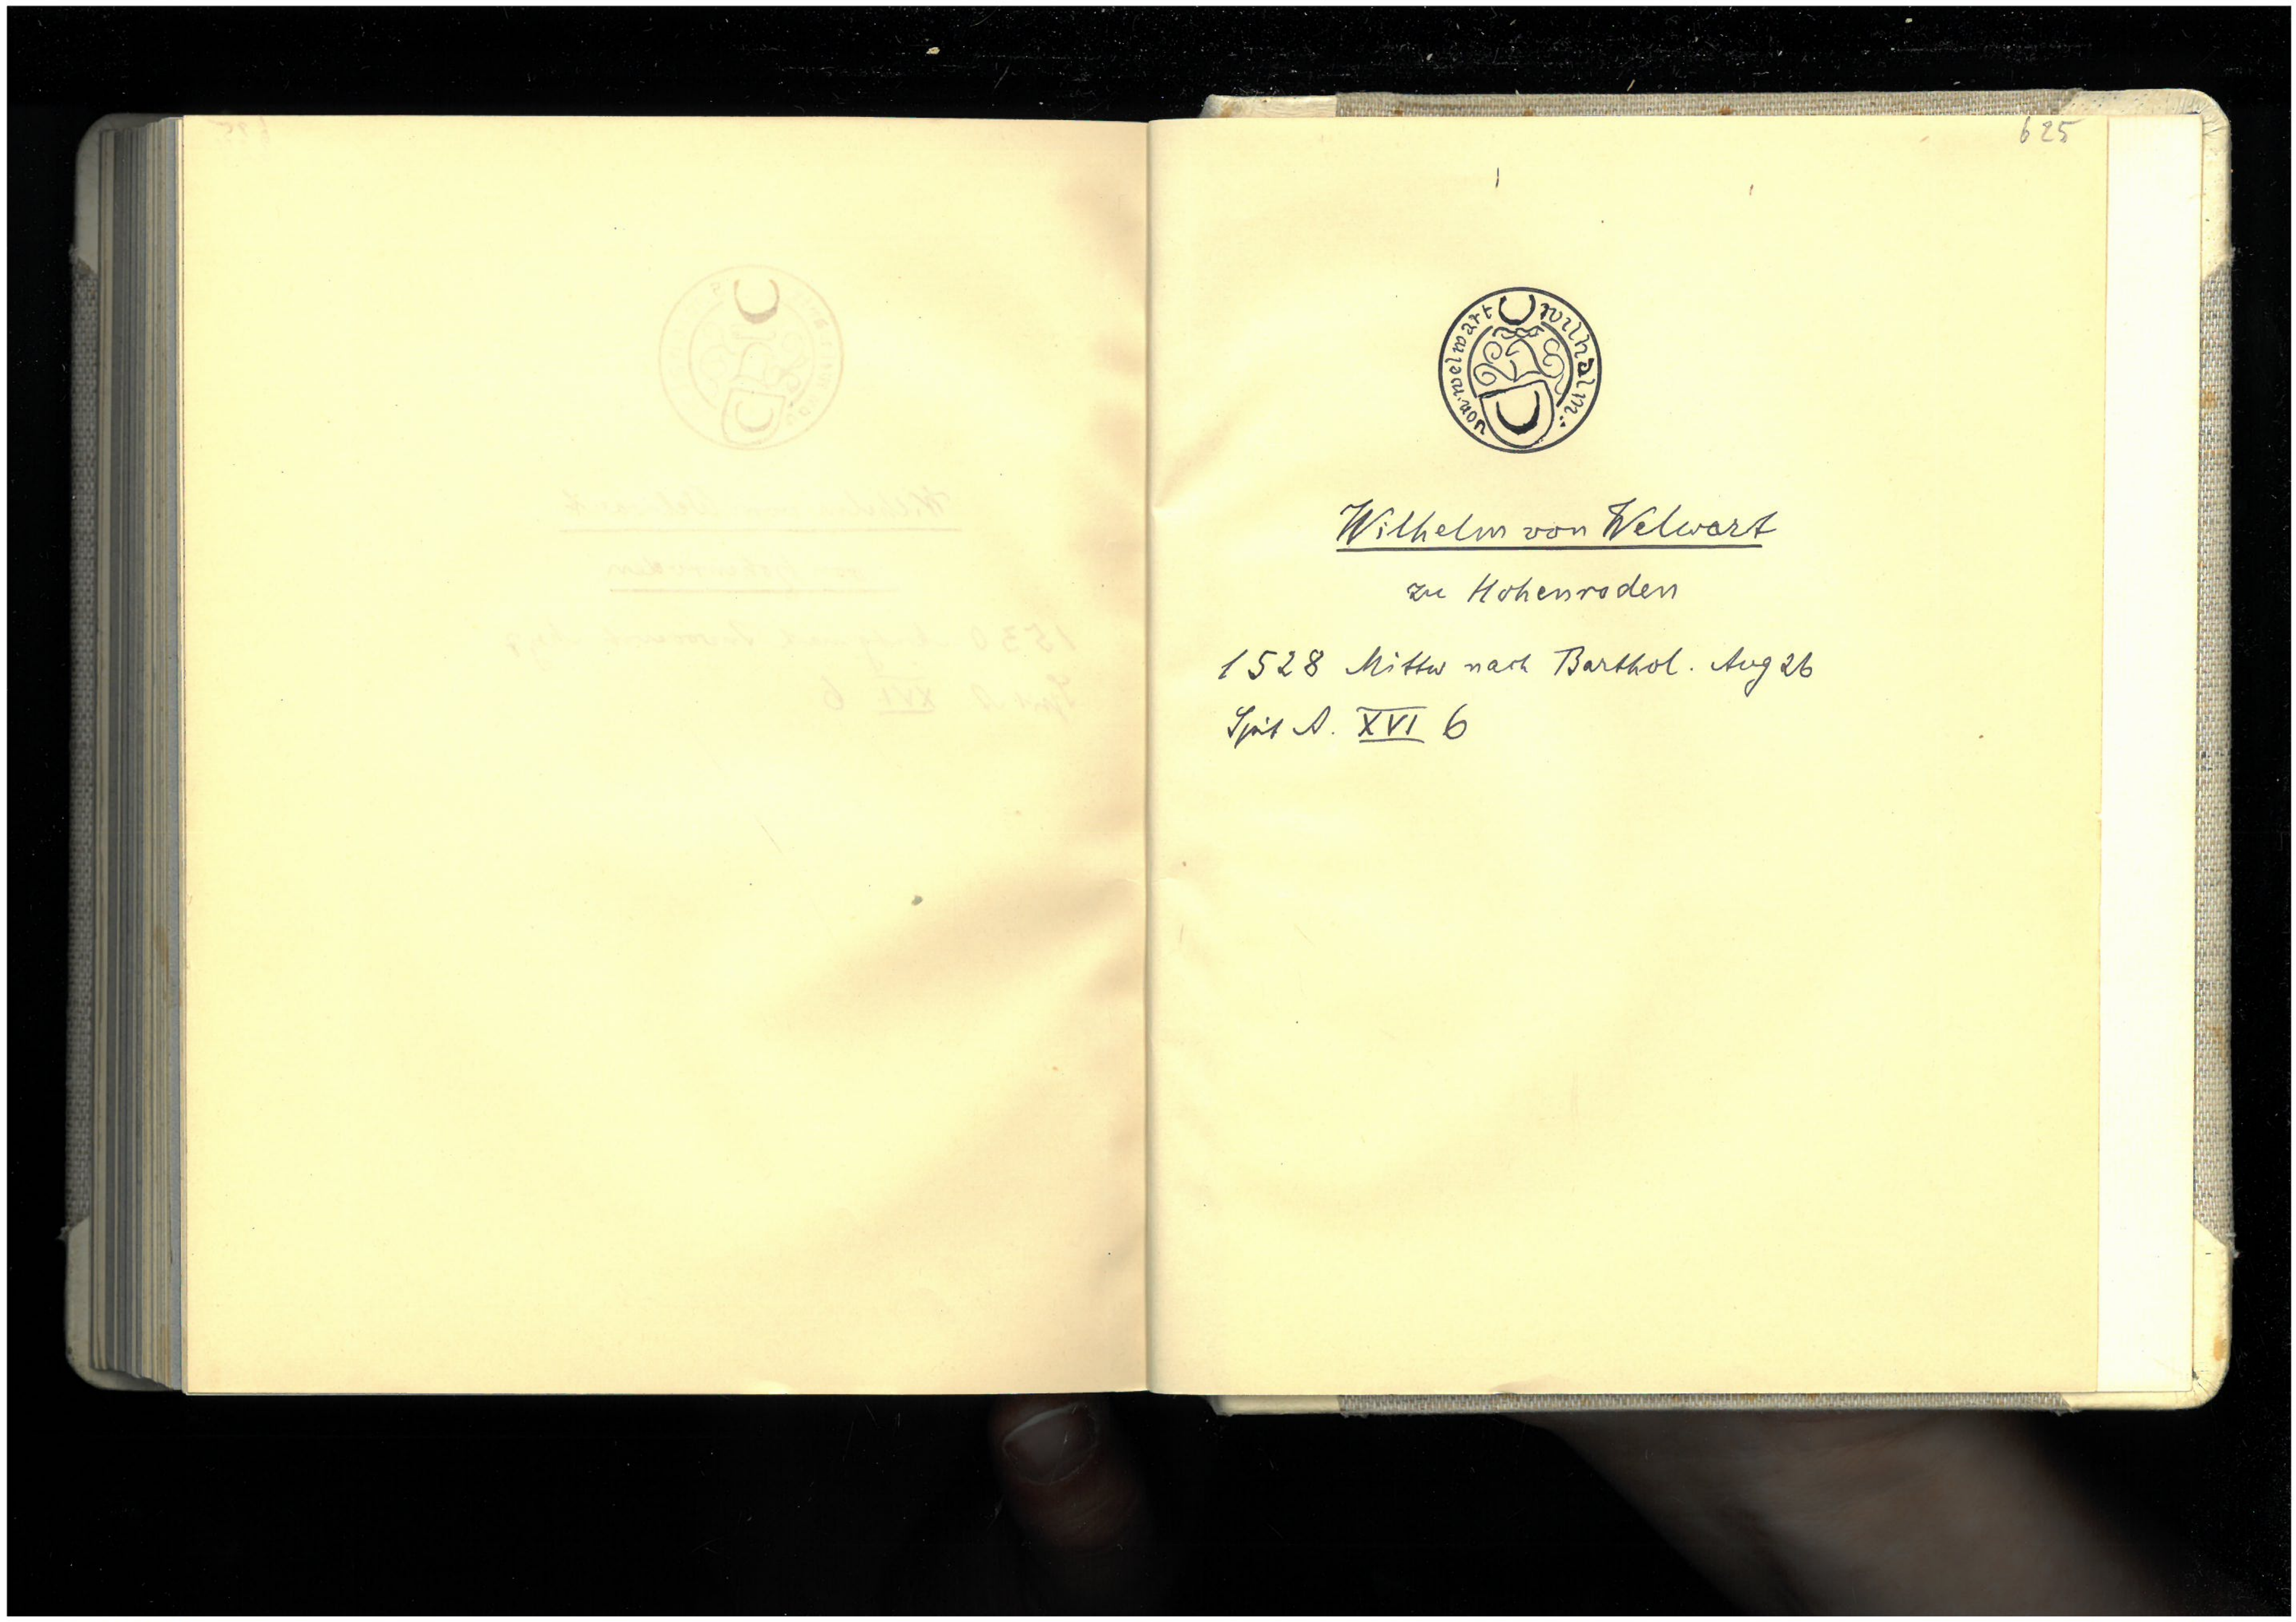 625
wilhalm: von. welwart
Wilhelm von Welwart
zu Hohenroden
1528 Mittw nach Barthol. Aug 26
Spit A. XVI 6